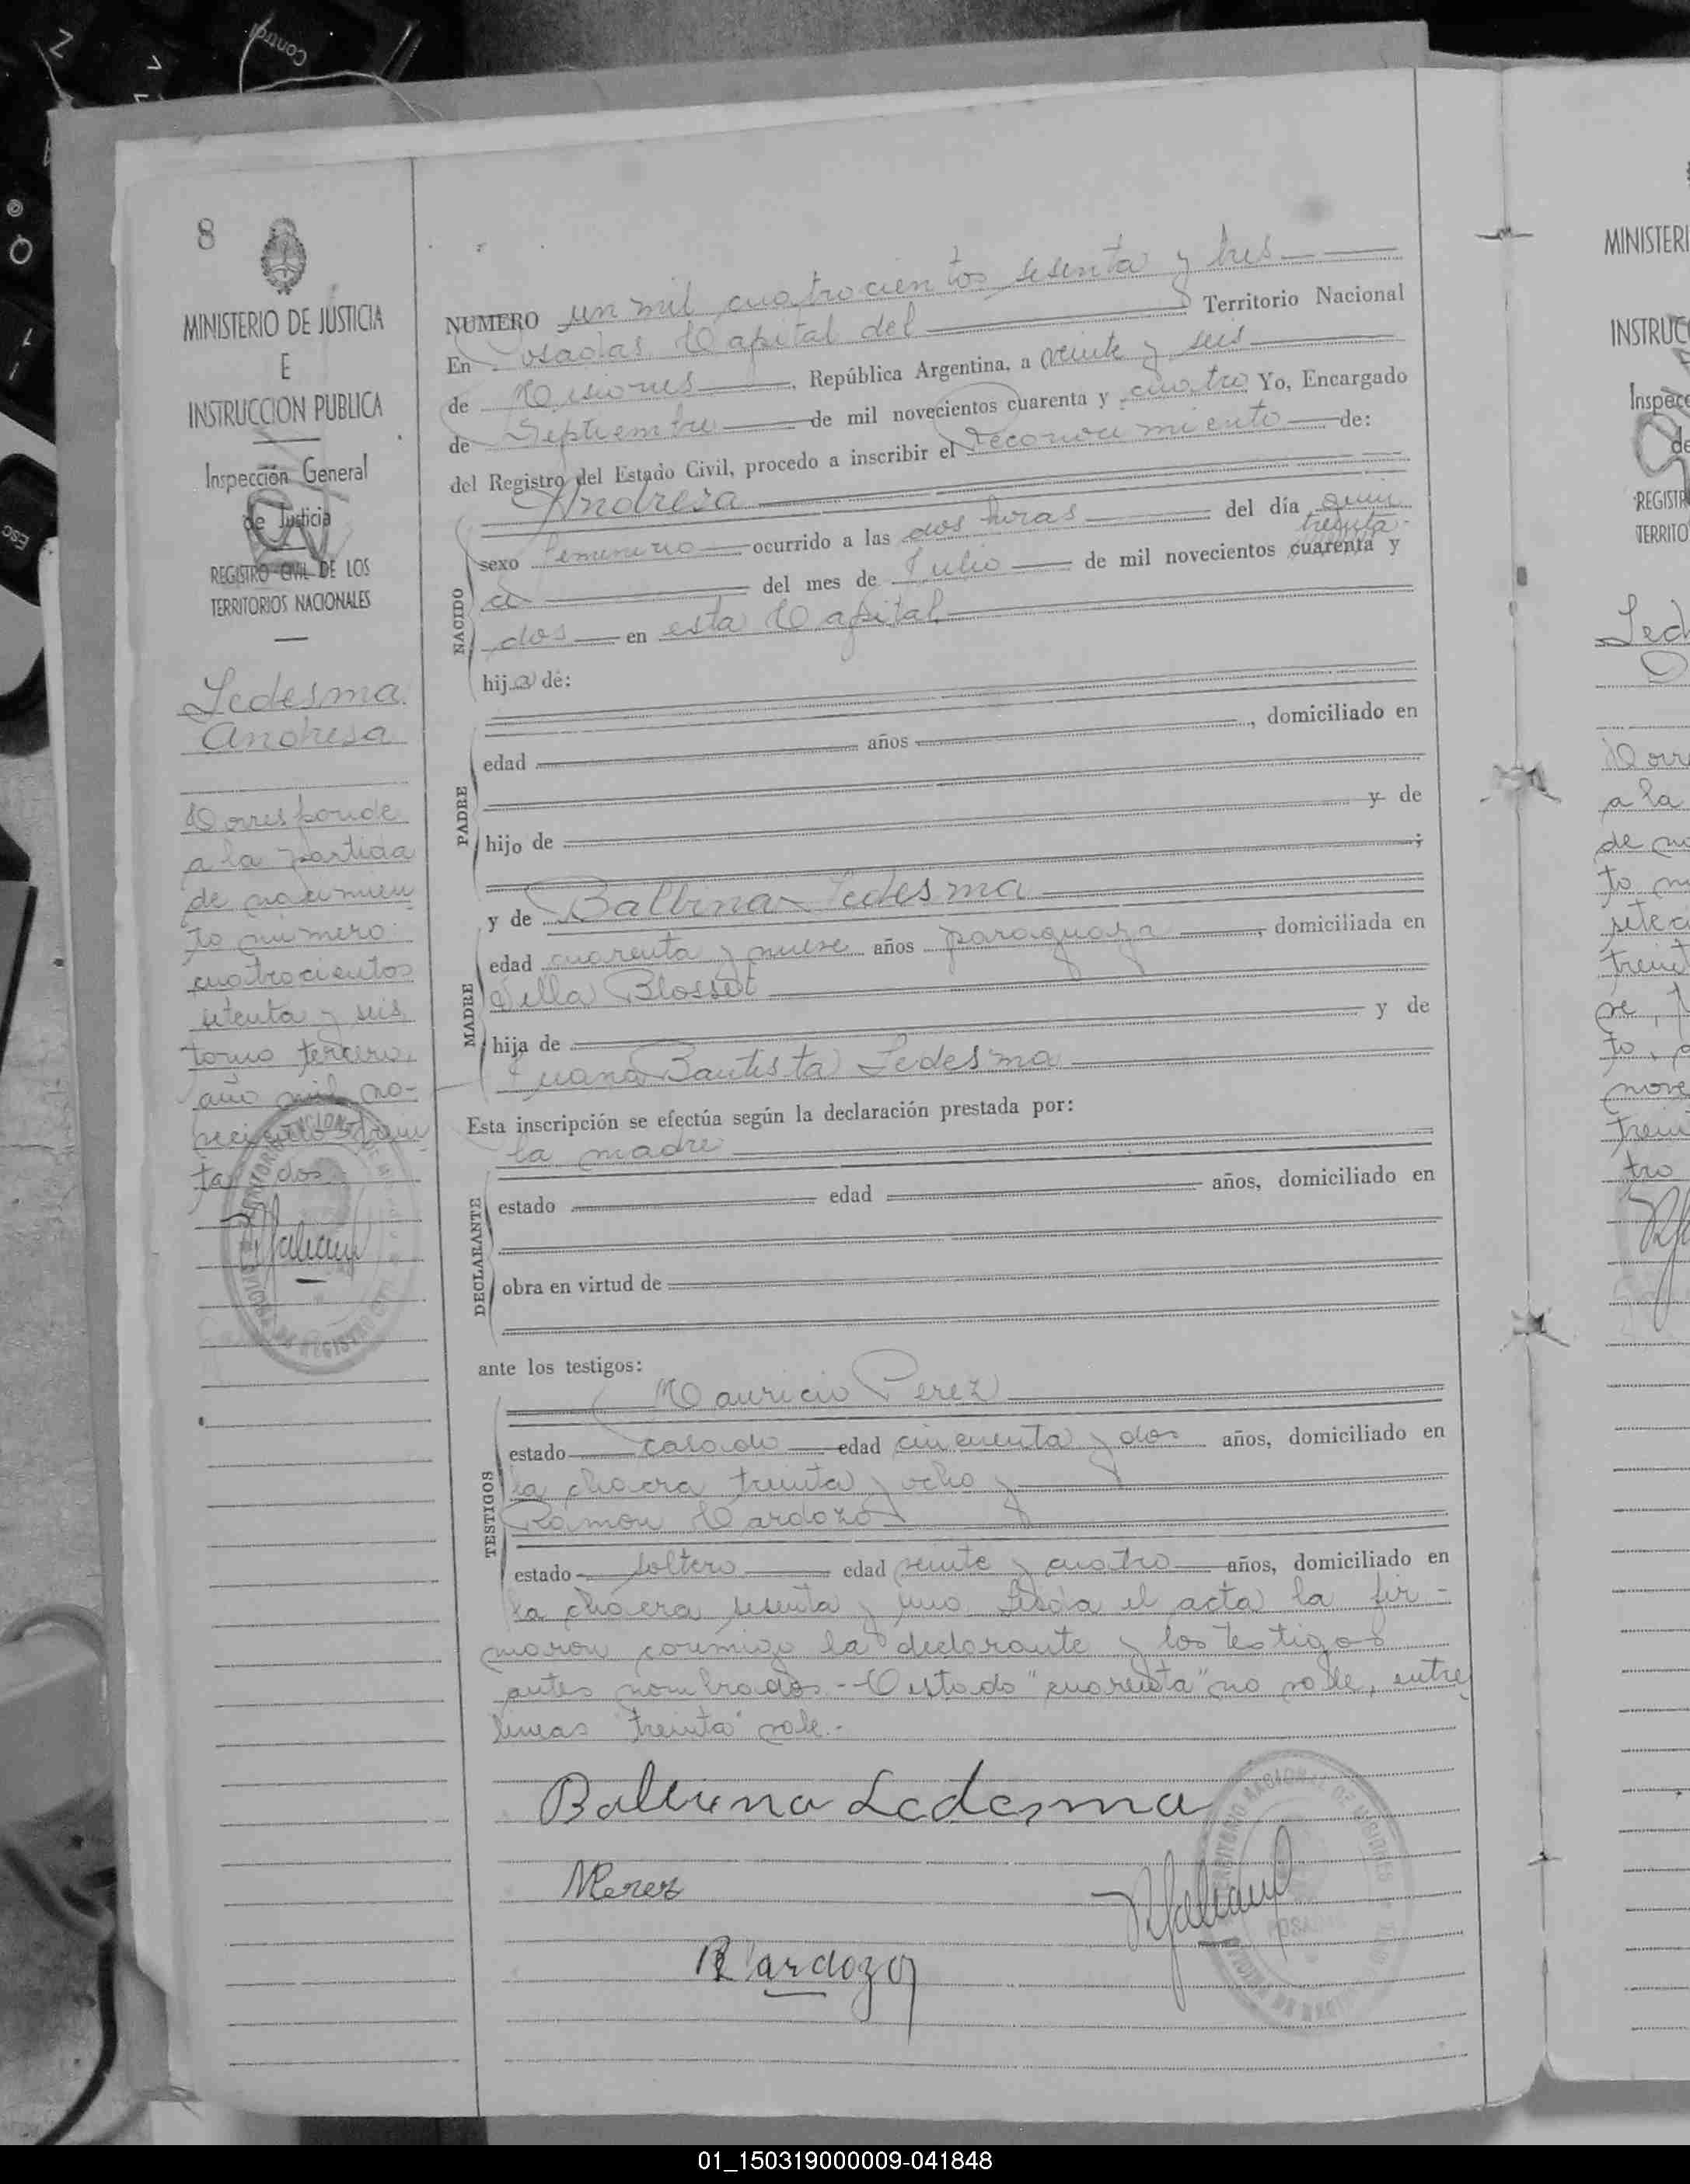 Control
Z
Esc
8
MINISTERIO DE JUSTICIA
E
INSTRUCCION PUBLICA
Inspección General
de Justicia
REGISTRO CIVIL DE LOS
TERRITORIOS NACIONALES
Ledesma
Andresa
Corresponde
a la partida
de nacimien
to numero
cuatrocientos
setenta y seis
tomo tercero,
año mil no-
vecientos trein
ta y dos
NUMERO un mil cuatrocientos sesenta y tres
En Posadas Capital del Territorio Nacional
de Misiones, República Argentina, a veinte y seis
de Septiembre de mil novecientos cuarenta y cuatro Yo, Encargado
del Registro del Estado Civil, procedo a inscribir el reconocimiento de:
Andresa
NACIDO
sexo femenino ocurrido a las dos horas del día quin
treinta
ce del mes de Julio de mil novecientos cuarenta y
dos en esta Capital
hija de:
PADRE
edad años, domiciliado en
hijo de y de
;
MADRE
y de Balbina Ledesma
edad cuarenta y nueve años paraguaya, domiciliada en
Villa Blosset
hija de y de
Juana Bautista Ledesma
Esta inscripción se efectúa según la declaración prestada por:
la madre
DECLARANTE
estado edad años, domiciliado en
obra en virtud de
ante los testigos:
Mauricio Perez
TESTIGOS
estado casado edad cincuenta y dos años, domiciliado en
la chacra treinta y ocho y
Ramon Cardozo
estado soltero edad veinte y cuatro años, domiciliado en
la chacra sesenta y uno. Leida el acta la fir-
maron conmigo la declarante y los testigos
antes nombrados.- Testado "cuarenta" no vale, entre
lineas "treinta" vale.-
Balbina Ledesma
MPerez
RCardozo
TERRITORIO NACIONAL DE MISIONES
POSADAS
MINISTERI
INSTRUCC
Inspecc
de
REGISTR
TERRITO
Led
Corre
a la
de na
to nu
setec
treint
to,
nove
trein
tro
01_150319000009-041848